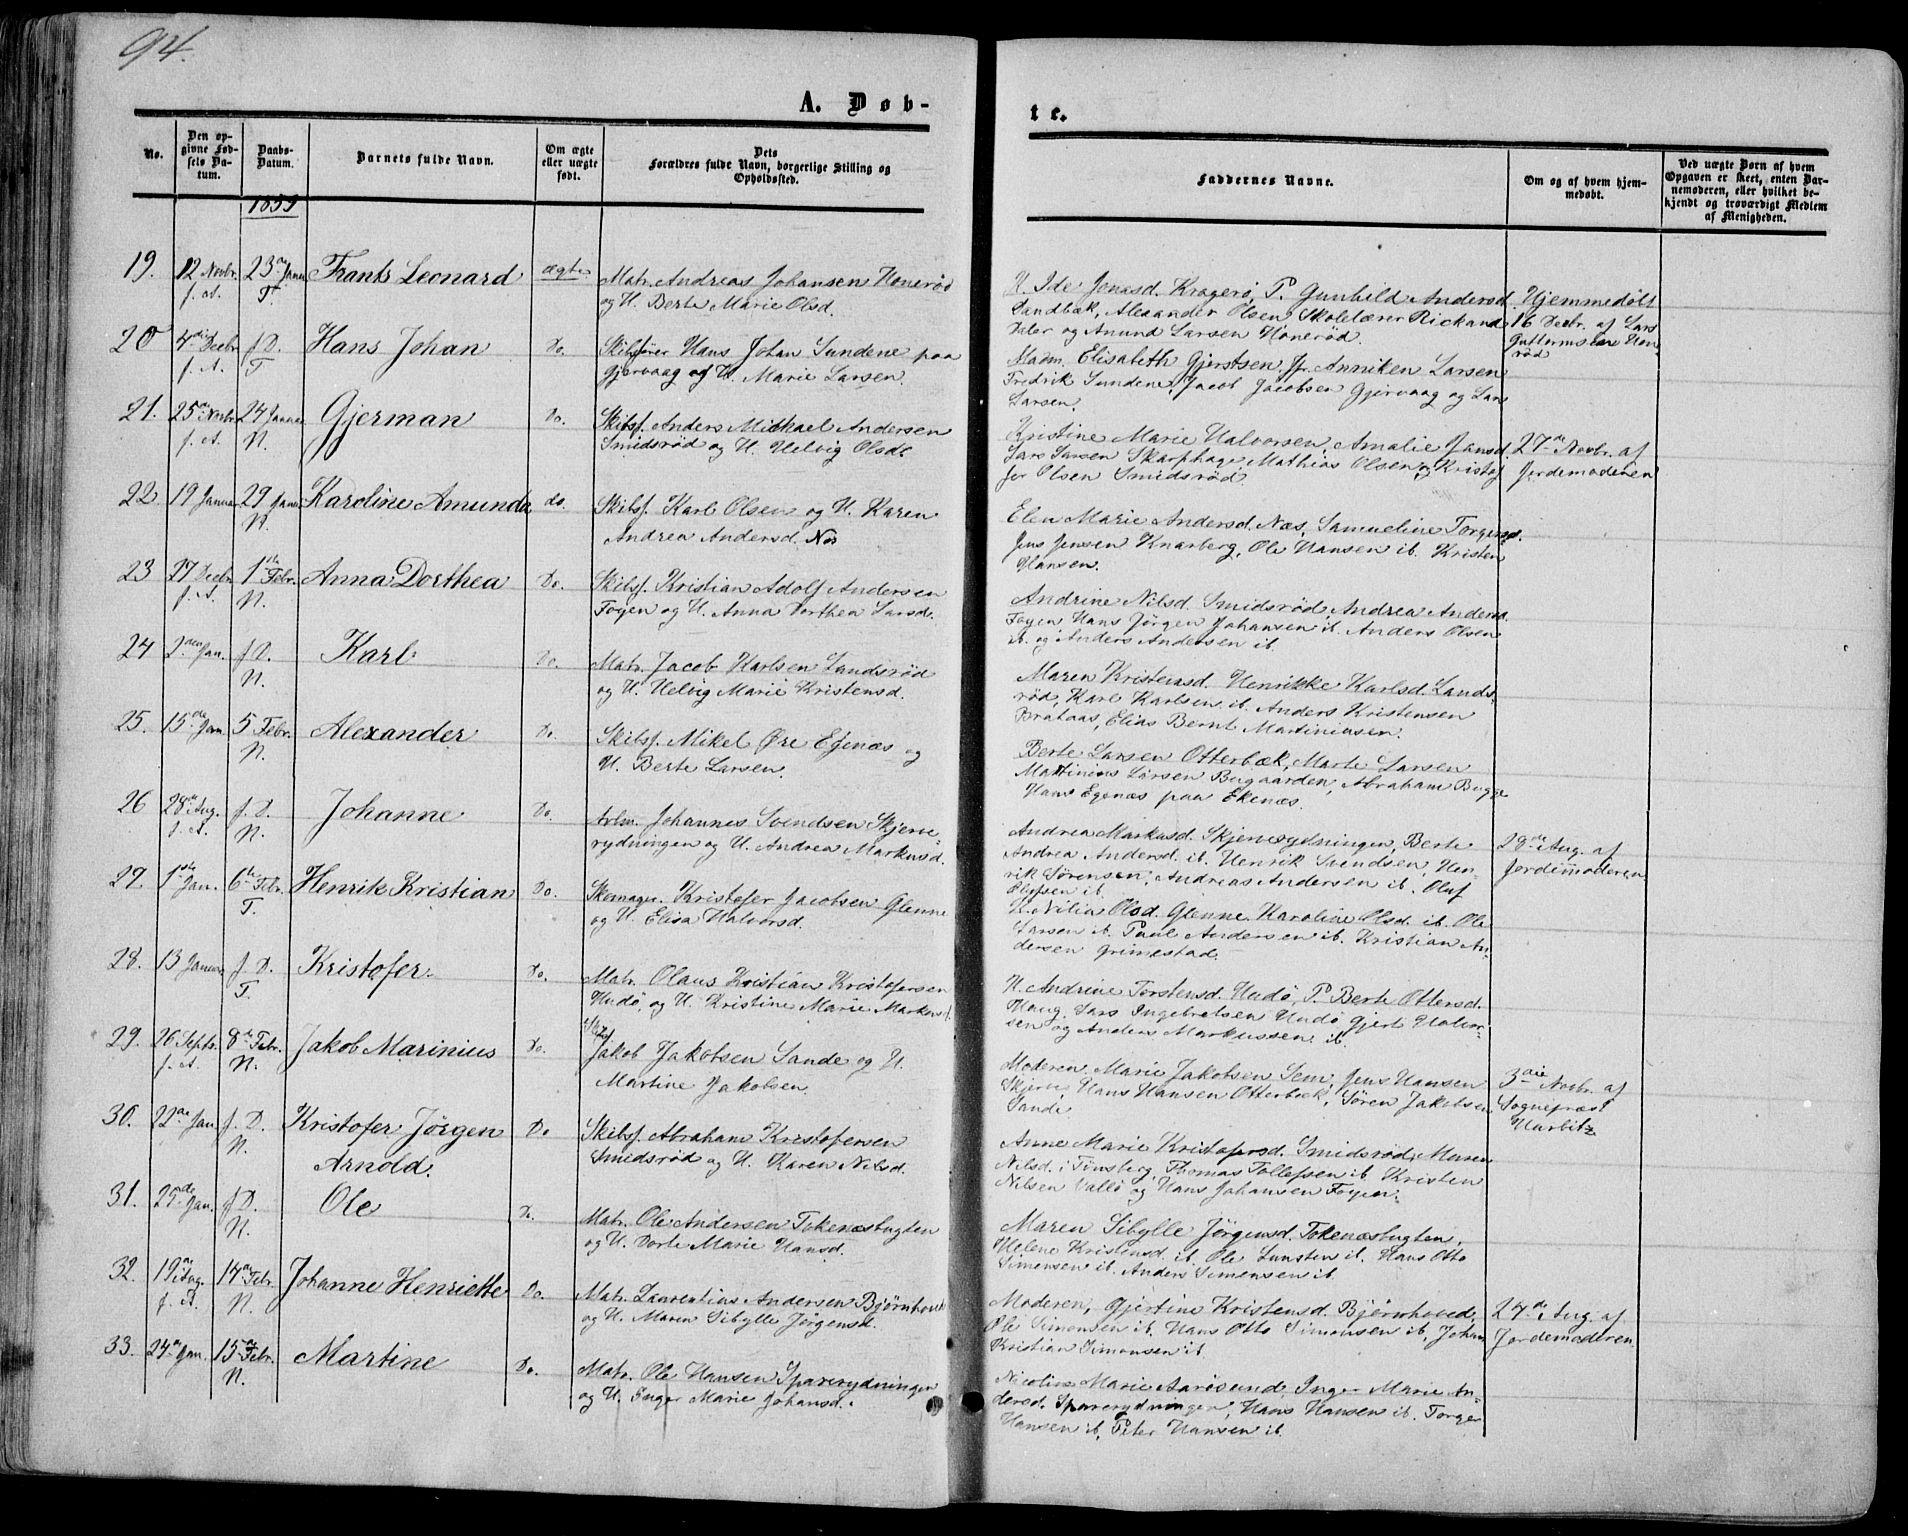 94.
A. Døb-
te.
No.
Den opgivne Fødsels Datum.
Daabs-Datum.
Barnets fulde Navn.
Om ægte eller uægte født.
Dets Forældres fulde Navn, borgerlige Stilling og Opholdssted.
Faddernes Navne.
Om og af hvem hjemmedøbt.
Ved uægte Born af hvem Opgaven er skeet, enten Barnemoderen, eller hvilket bekjendt og troværdigt Medlem af Menigheden.
1859
19. 12 Novbr. f. A. 23de Janu T. Frants Leonard ægte
Matr. Andreas Johansen Honerød
og H. Berte Marie Olsd.
H. Ide Jonasd. Kragerø, P. Gunhild Andersd.
Sandbæk, Alexander Olsen, Skolelærer Rickard
Daler og Amund Larsen Honerød.
Hjemmedøbt
16 Decbr. af Lars
Guttormsen Hon-
rød
20 4de Decbr f. A. f. D. T Hans Johan Do.
Skibsfører Hans Johan Sundene paa
Gjervaag og H. Marie Larsen.
Madm. Elisabeth Gjertsen, Jfr. Anniken Larsen
Fredrik Sundene, Jacob Jacobsen Gjervaag og Lars
Larsen.
21. 25de Novbr. f. A. 24 Januar N. Gjerman Do.
Skibsf. Anders Mickael Andersen
Smidsrød og H. Helvig Olsd.
Kristine Marie Halvorsen, Amalie Jansd.
Lars Larsen Skarphage, Mathias Olsen, Kristof
fer Olsen Smidsrød.
27de Novbr. af
Jordemoderen
22. 19 Januar 29 Janu N. Karoline Amunda do.
Skibsf. Karl Olsen og H. Karen
Andrea Andersd. Nes
Elen Marie Andersd. Næs, Samueline Torgersd.
Jens Jensen Knarberg, Ole Hansen ib. Kristen
Hansen.
23 27 Decbr. f. A. 1ste Febr. N. Anna Dorthea Do.
Skibsf. Kristian Adolf Andersen
Foyen og H. Anna Dorthea Larsd.
Andrine Nilsd. Smidsrød, Andrea Andersd.
Foyen Hans Jørgen Johansen ib. Anders Olsen
ib. og Anders Andersen ib.
24 2den Jan. f. D. N. Karl Do.
Matr. Jacob Karlsen Sundsrød
og H. Helvig Marie Kristensd.
Maren Kristensd. Henrikke Karlsd. Lands-
rød, Karl Karlsen ib. Anders Kristensen
Brataas, Elias Bernt Martiniusen.
25. 15de Jan 5 Febr. N. Alexander Do.
Skibsf. Mikel Øre Egenæs og
H. Berte Larsen.
Berte Larsen Otterbæk, Marte Larsen
Martinius Larsen Bugaarden, Abraham Bugge
Hans Egenæs paa Ekenæs.
26 28de Aug. f. A. f. D. N. Johanne Do.
Arbm. Johannes Svendsen Skjerve-
rydningen og H. Andrea Markusd.
Andrea Markusd. Skjerverydningen, Berte
Andrea Andersd. ib. Henrik Svendsen, Hen-
rik Sørensen, Andreas Andersen ib. Oluf
Olufsen ib.
28de Aug. af
Jordemoderen
27. 1ste Jan. 6te Febr. T. Henrik Kristian Do.
Skomager Kristofer Jacobsen Glenne
og H. Elisa Halvorsd.
H. Nilia Olsd. Glenne. Karoline Olsd. ib. Ole
Larsen ib. Paul Andersen ib. Kristian An-
dersen Grimestad.
28. 13 Januar f. D. T. Kristofer. Do.
Matr. Olaus Kristian Kristofersen
Hudø, og H. Kristine Marie Markusd.
H. Andrine Torstensd. Hudø, P. Berte Ottersd.
Haug, Lars Ingebretsen Hudø Gjert Halvor-
sen og Anders Markussen ib.
29. 26 Septr. f. A. 8de Febr. N. Jakob Marinius Do.
Skbf. Jakob Jakobsen Sande og H.
Martine Jakobsen.
Moderen, Marie Jakobsen Sem, Jens Hansen
Skjerve, Hans Hansen Otterbæk, Søren Jakobsen
Sande
3die Novbr. af
Sognepræst
Harbitz
30. 22de Jan. f. D. N. Kristofer Jørgen Arnold. Do
Skibsf. Abraham Kristofersen
Smidsrød og H. Karen Nilsd.
Anne Marie Kristofersd. Smidsrød, Maren
Nilsd. i Tønsberg, Thomas Tollefsen ib. Kristen
Nilsen Vallø og Hans Johansen Foyen.
31. 25de Jan. f. D. N. Ole Do.
Matr. Ole Andersen Tokenæsbugten
og H. Dorte Marie Hansd.
Maren Sibylle Jørgensd. Tokenæsbugten,
Helene Kristensd. ib. Ole Sunsten ib. Hans Otto
Simensen ib. Anders Simensen ib.
32. 19de Aug. f. A. 14de Febr. N. Johanne Henriette Do.
Matr. Laurentius Andersen Bjørnhoved
og H. Maren Sibylle Jørgensd.
Moderen, Gjertine Kristensd. Bjørnhoved,
Ole Simonsen ib. Hans Otto Simonsen ib, Johan
Kristian Simonsen ib.
24de Aug. af
Jordemoderen
33. 24de Jan. 15de Febr. N. Martine Do.
Matr. Ole Hansen Sparerydningen
og H. Inger Marie Johansd.
Nicoline Marie Aarøsund, Inger Marie An-
dersd. Sparerydningen, Hans Hansen ib. Torger
Hansen ib, Peter Hansen ib.